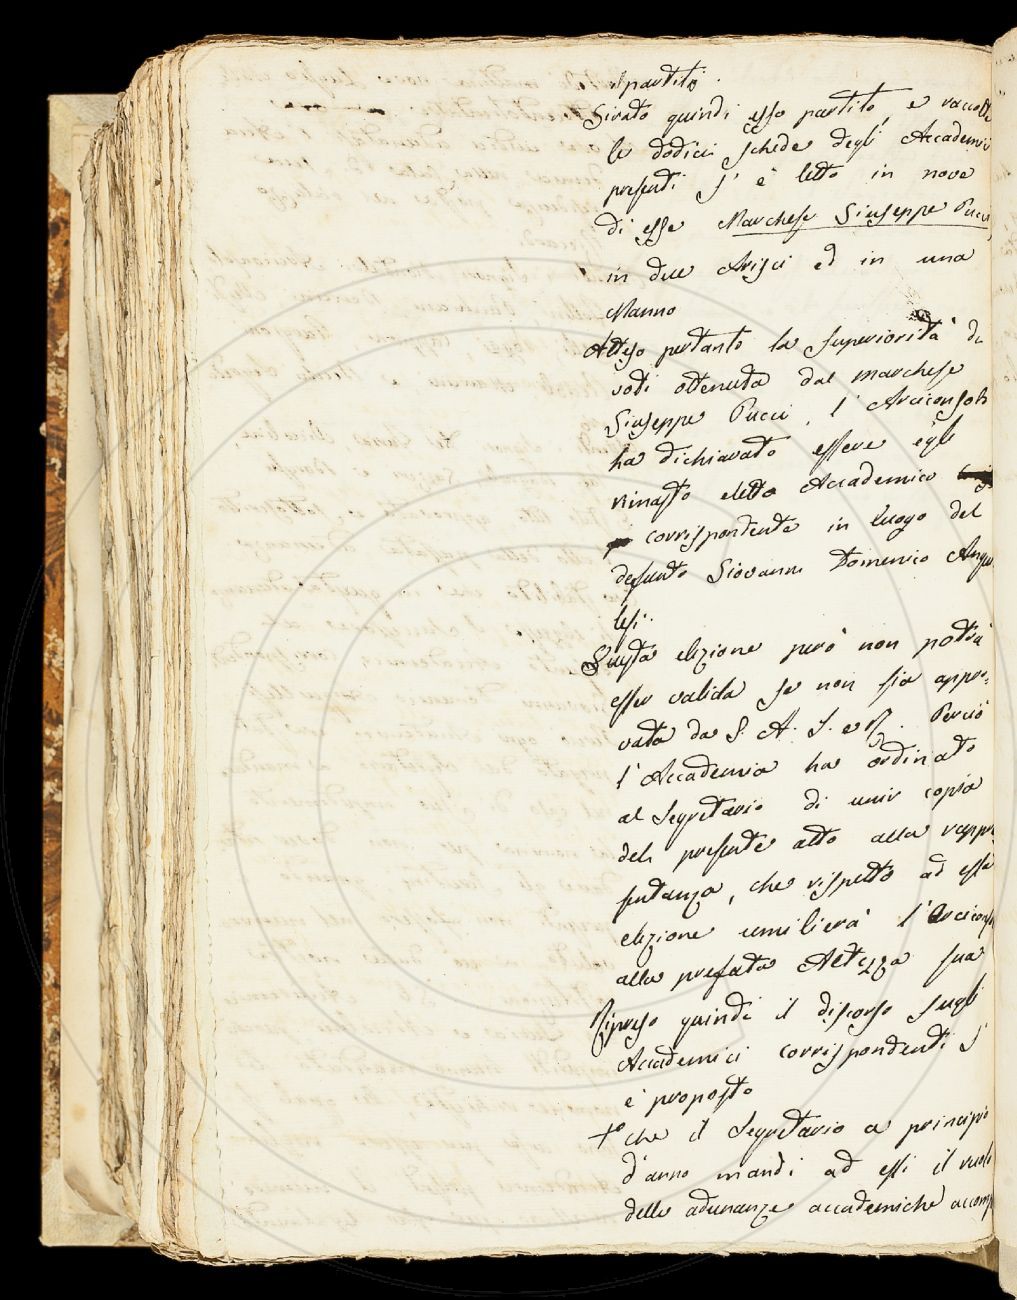 il partito.
Girato quindi esso partito, e raccolte
le dodici schede degli Accademici
presenti s' è letto in nove
di esse Marchese Giuseppe Pucci,
in due Arisci ed in una
Manno
Atteso pertanto la superiorità di
voti ottenuta dal marchese
Giuseppe Pucci, l'Arciconsolo
ha dichiarato essere egli
rimasto eletto Accademico
corrispondente in luogo del
defunto Giovanni Domenico Ange
lesi.
Questa elezione però non potrà
esser valida se non sia appro=
vata da S. A. I. e R. Perciò
l'Accademia ha ordinato
al Segretario di unir copia
del presente atto alla rappre
sentanza, che rispetto ad essa
elezione umilierà l'Arciconso
alla prefata Altezza sua
Ripreso quindi il discorso sugli
Accademici corrispondenti s'
è proposto
+° che il Segretario a principio
d'anno mandi ad essi il ruolo
delle adunanze accademiche accomp